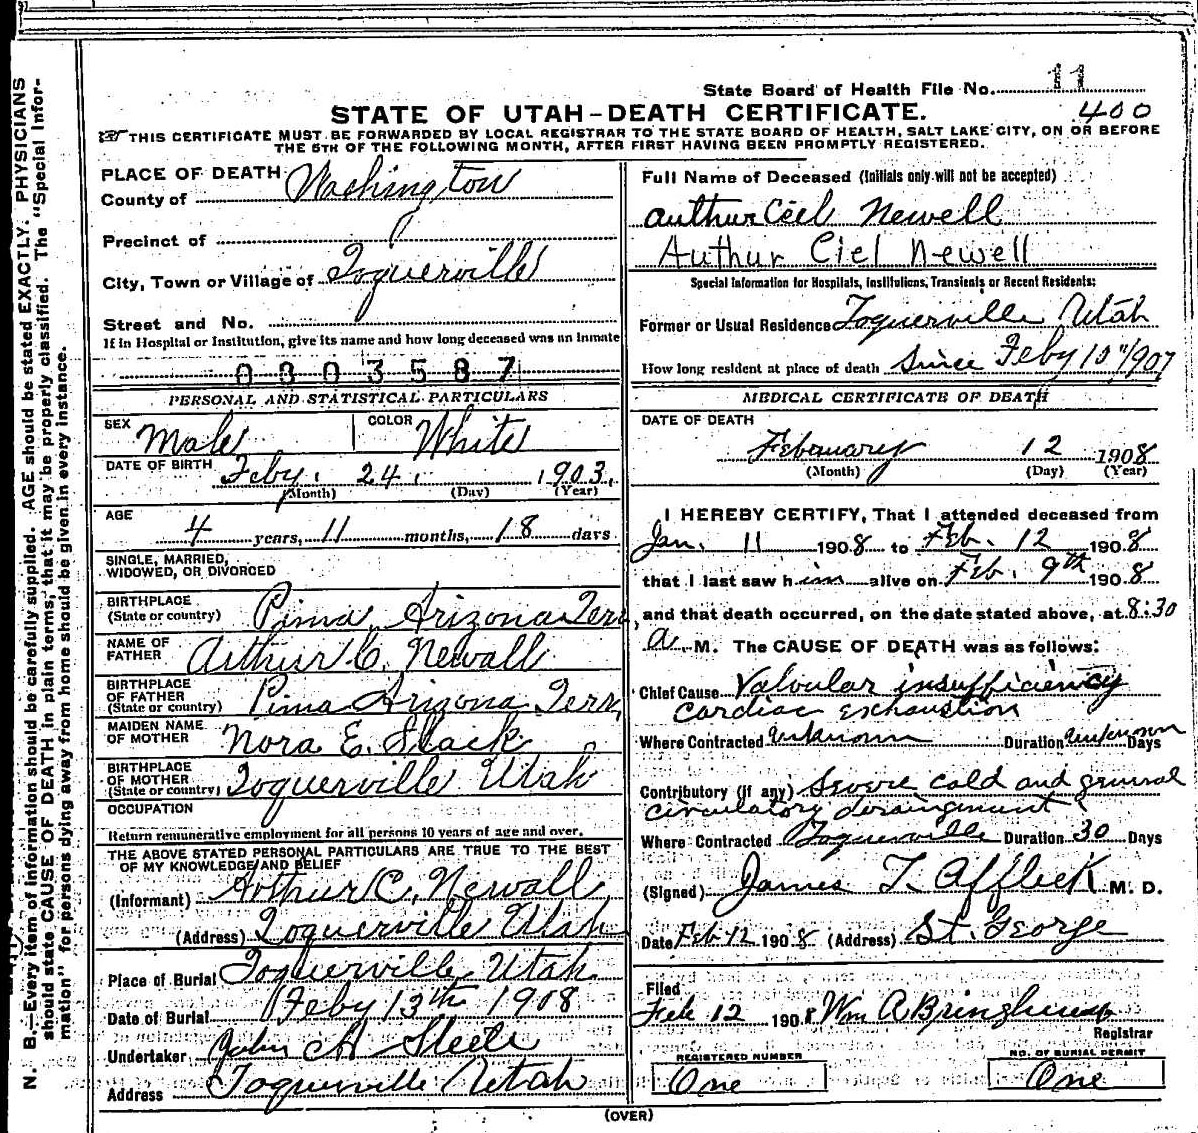 State Board of Health File No. 11
400
STATE OF UTAH-DEATH CERTIFICATE.
THIS CERTIFICATE MUST BE FORWARDED BY LOCAL REGISTRAR TO THE STATE BOARD OF HEALTH, SALT LAKE CITY, ON OR BEFORE
THE 5TH OF THE FOLLOWING MONTH, AFTER FIRST HAVING BEEN PROMPTLY REGISTERED.
PLACE OF DEATH
County of Washington
Precinct of
City, Town or Village of Toquerville
Street and No.
If in Hospital or Institution, give its name and how long deceased was an inmate
0803587
PERSONAL AND STATISTICAL PARTICULARS
SEX Male COLOR White
DATE OF BIRTH Feby. 24. 1903.
(Month) (Day) (Year)
AGE
4 years, 11 months, 18 days
SINGLE, MARRIED,
WIDOWED, OR DIVORCED
BIRTHPLACE
(State or country) Pima, Arizona Terr
NAME OF
FATHER Arthur C. Newall
BIRTHPLACE
OF FATHER
(State or country) Pima Arizona Terr
MAIDEN NAME
OF MOTHER Nora E. Slack
BIRTHPLACE
OF MOTHER
(State or country) Toquerville Utah
OCCUPATION
Return remunerative employment for all persons 10 years of age and over.
THE ABOVE STATED PERSONAL PARTICULARS ARE TRUE TO THE BEST
OF MY KNOWLEDGE AND BELIEF
(Informant) Arthur C. Newall
(Address) Toquerville Utah
Place of Burial Toquerville Utah
Date of Burial Feby 13th 1908
Undertaker John A Steele
Address Toquerville Utah
Full Name of Deceased (Initials only will not be accepted)
Authur Ciel Newell
Authur Ciel Newell
Special Information for Hospitals, Institutions, Transients or Recent Residents:
Former or Usual Residence Toquerville Utah
How long resident at place of death Since Feby 10"/907
MEDICAL CERTIFICATE OF DEATH
DATE OF DEATH
Febuary 12 1908
(Month) (Day) (Year)
I HEREBY CERTIFY, That I attended deceased from
Jan. 11 1908 to Feb. 12 1908
that I last saw him alive on Feb. 9th 1908
and that death occurred, on the date stated above, at 8:30
a. M. The CAUSE OF DEATH was as follows:
Chief Cause Valvular insufficiency
cardiac exhaustion
Where Contracted Unknown Duration Unknown Days
Contributory (if any) Severe cold and general
circulatory derangement
Where Contracted Toquerville Duration 30 Days
(Signed) James T. Affleck M. D.
Date Feb 12 1908 (Address) St. George
Filed
Feb 12 1908 Wm A Bringhurst
Registrar
REGISTERED NUMBER
One
NO. OF BURIAL PERMIT
One
(OVER)
N. B.—Every item of information should be carefully supplied. AGE should be stated EXACTLY. PHYSICIANS
should state CAUSE OF DEATH in plain terms, that it may be properly classified. The "Special Infor-
mation" for persons dying away from home should be given in every instance.